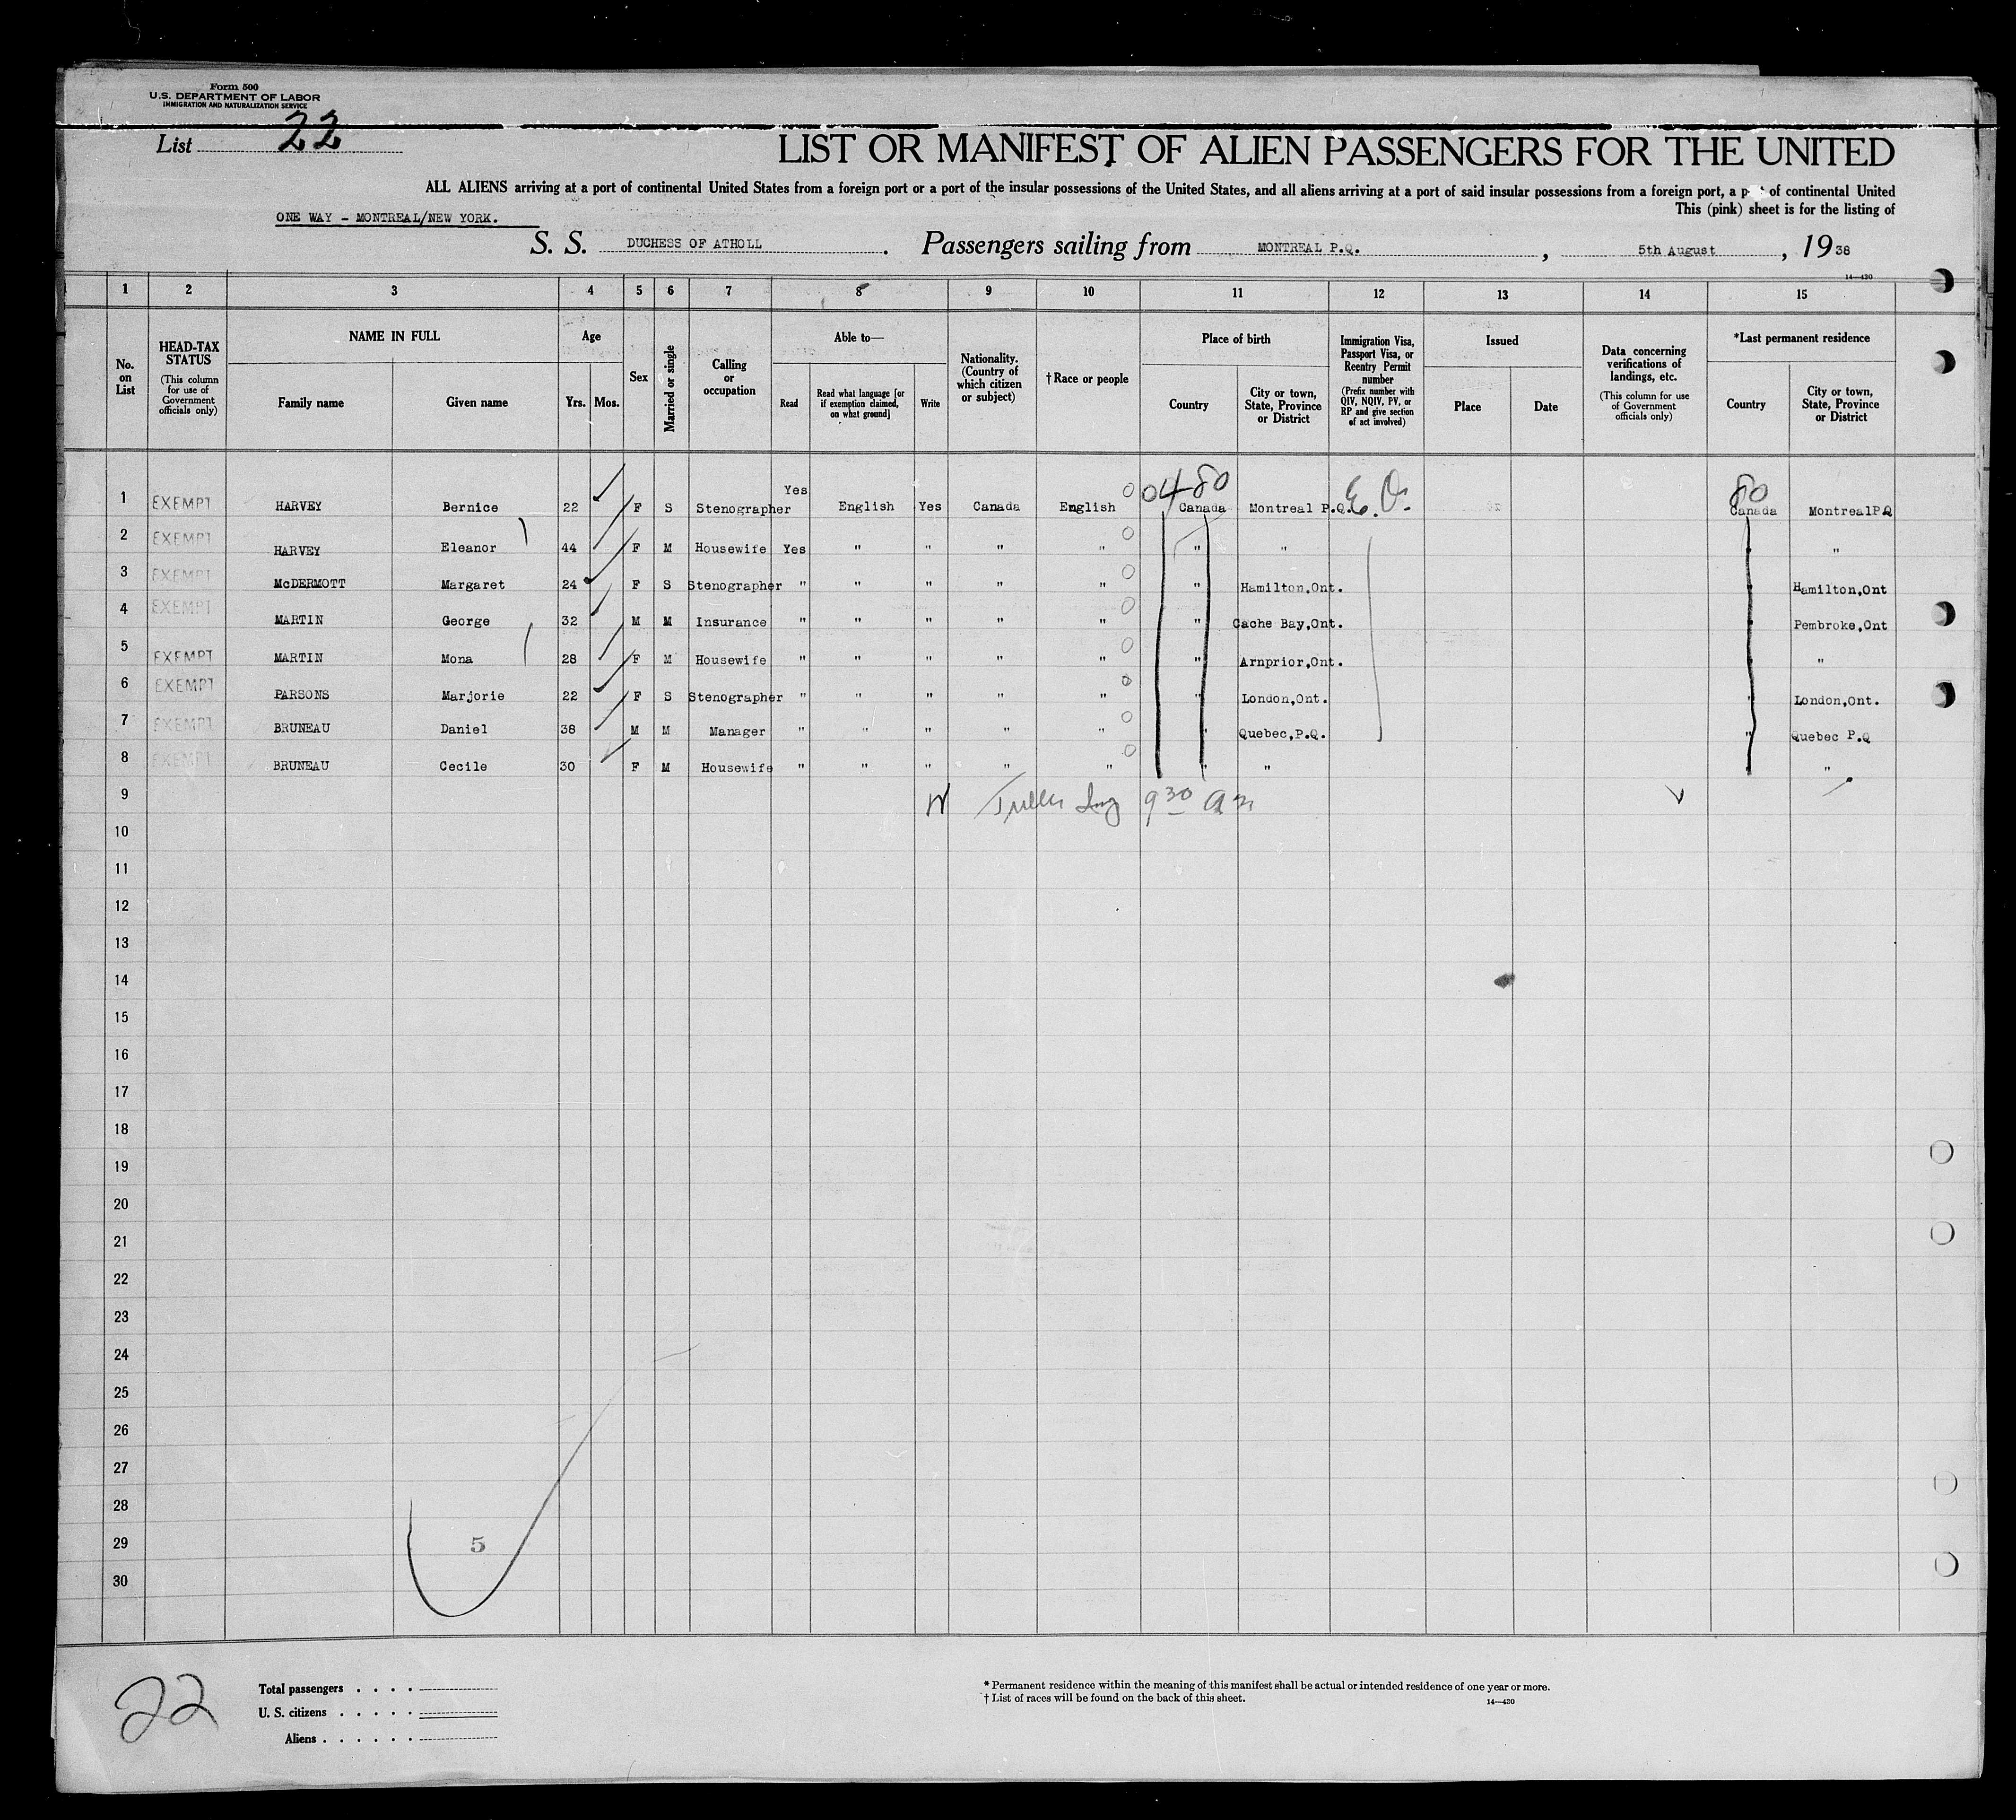 Form 500
U.S. DEPARTMENT OF LABOR
IMMIGRATION AND NATURALIZATION SERVICE
List 22
LIST OR MANIFEST OF ALIEN PASSENGERS FOR THE UNITED
ALL ALIENS arriving at a port of continental United States from a foreign port or a port of the insular possessions of the United States, and all aliens arriving at a port of said insular possessions from a foreign port, a p of continental United
This (pink) sheet is for the listing of
ONE WAY - MONTREAL/NEW YORK.
S. S. DUCHESS OF ATHOLL. Passengers sailing from MONTREAL P.Q., 5th August, 1938
14-430
1 2 3 4 5 6 7 8 9 10 11 12 13 14 15
No. on List
HEAD-TAX STATUS (This column for use of Government officials only)
NAME IN FULL
Family name Given name
Age
Yrs. Mos.
Sex
Married or single
Calling or occupation
Able to—
Read Read what language [or if exemption claimed, on what ground] Write
Nationality. (Country of which citizen or subject)
†Race or people
Place of birth
Country City or town, State, Province or District
Immigration Visa, Passport Visa, or Reentry Permit number (Prefix number with QIV, NQIV, PV, or RP and give section of act involved)
Issued
Place Date
Data concerning verifications of landings, etc. (This column for use of Government officials only)
*Last permanent residence
Country City or town, State, Province or District
0480 80
1 EXEMPT HARVEY Bernice 22 F S Stenographer Yes English Yes Canada English Canada Montreal P.Q. Canada MontrealP.Q
2 EXEMPT HARVEY Eleanor 44 F M Housewife Yes " " " " " " " "
3 EXEMPT McDERMOTT Margaret 24 F S Stenographer " " " " " " Hamilton,Ont. " Hamilton,Ont
4 EXEMPT MARTIN George 32 M M Insurance " " " " " " Cache Bay,Ont. " Pembroke,Ont
5 EXEMPT MARTIN Mona 28 F M Housewife " " " " " " Arnprior,Ont. " "
6 EXEMPT PARSONS Marjorie 22 F S Stenographer " " " " " " London,Ont. " London,Ont.
7 EXEMPT BRUNEAU Daniel 38 M M Manager " " " " " " Quebec,P.Q. " Quebec P.Q
8 EXEMPT BRUNEAU Cecile 30 F M Housewife " " " " " " " " "
9 9 30 am
10
11
12
13
14
15
16
17
18
19
20
21
22
23
24
25
26
27
28
29 5
30
22
Total passengers
U. S. citizens
Aliens
* Permanent residence within the meaning of this manifest shall be actual or intended residence of one year or more.
† List of races will be found on the back of this sheet.
14—430